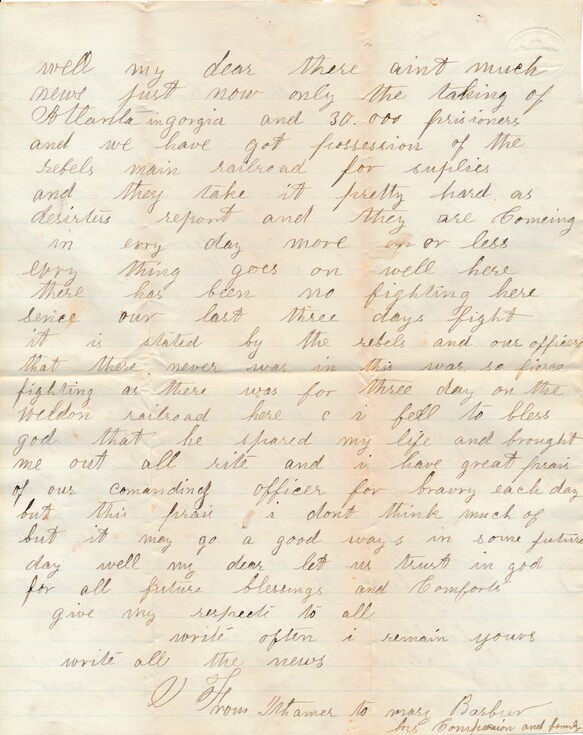 well my dear there aint much
news just now only the taking of
Atlanta in gorgia and 30.000 prisioners
and we have got possession of the
rebels main railroad for suplies
and they take it pretty hard as
desirters report and they are Comeing
in evry day more or less
evry thing goes on well here
there has been no fighting here
sence our last three days fight
it is stated by the rebels and our officers
that there never was in this was so fierce
fighting as there was for three day on the
Weldon railroad here i fell to bless
god that he spared my life and brought
me out all rite and i have great prais
of our comanding officer for bravry each day
but this prais i dont think much of
but it may go a good ways in some future
day well my dear let us trust in god
for all future blessings and Comforts
give my respects to all
write often i remain yours
write all the news
From to mary Barbur
his Companion and